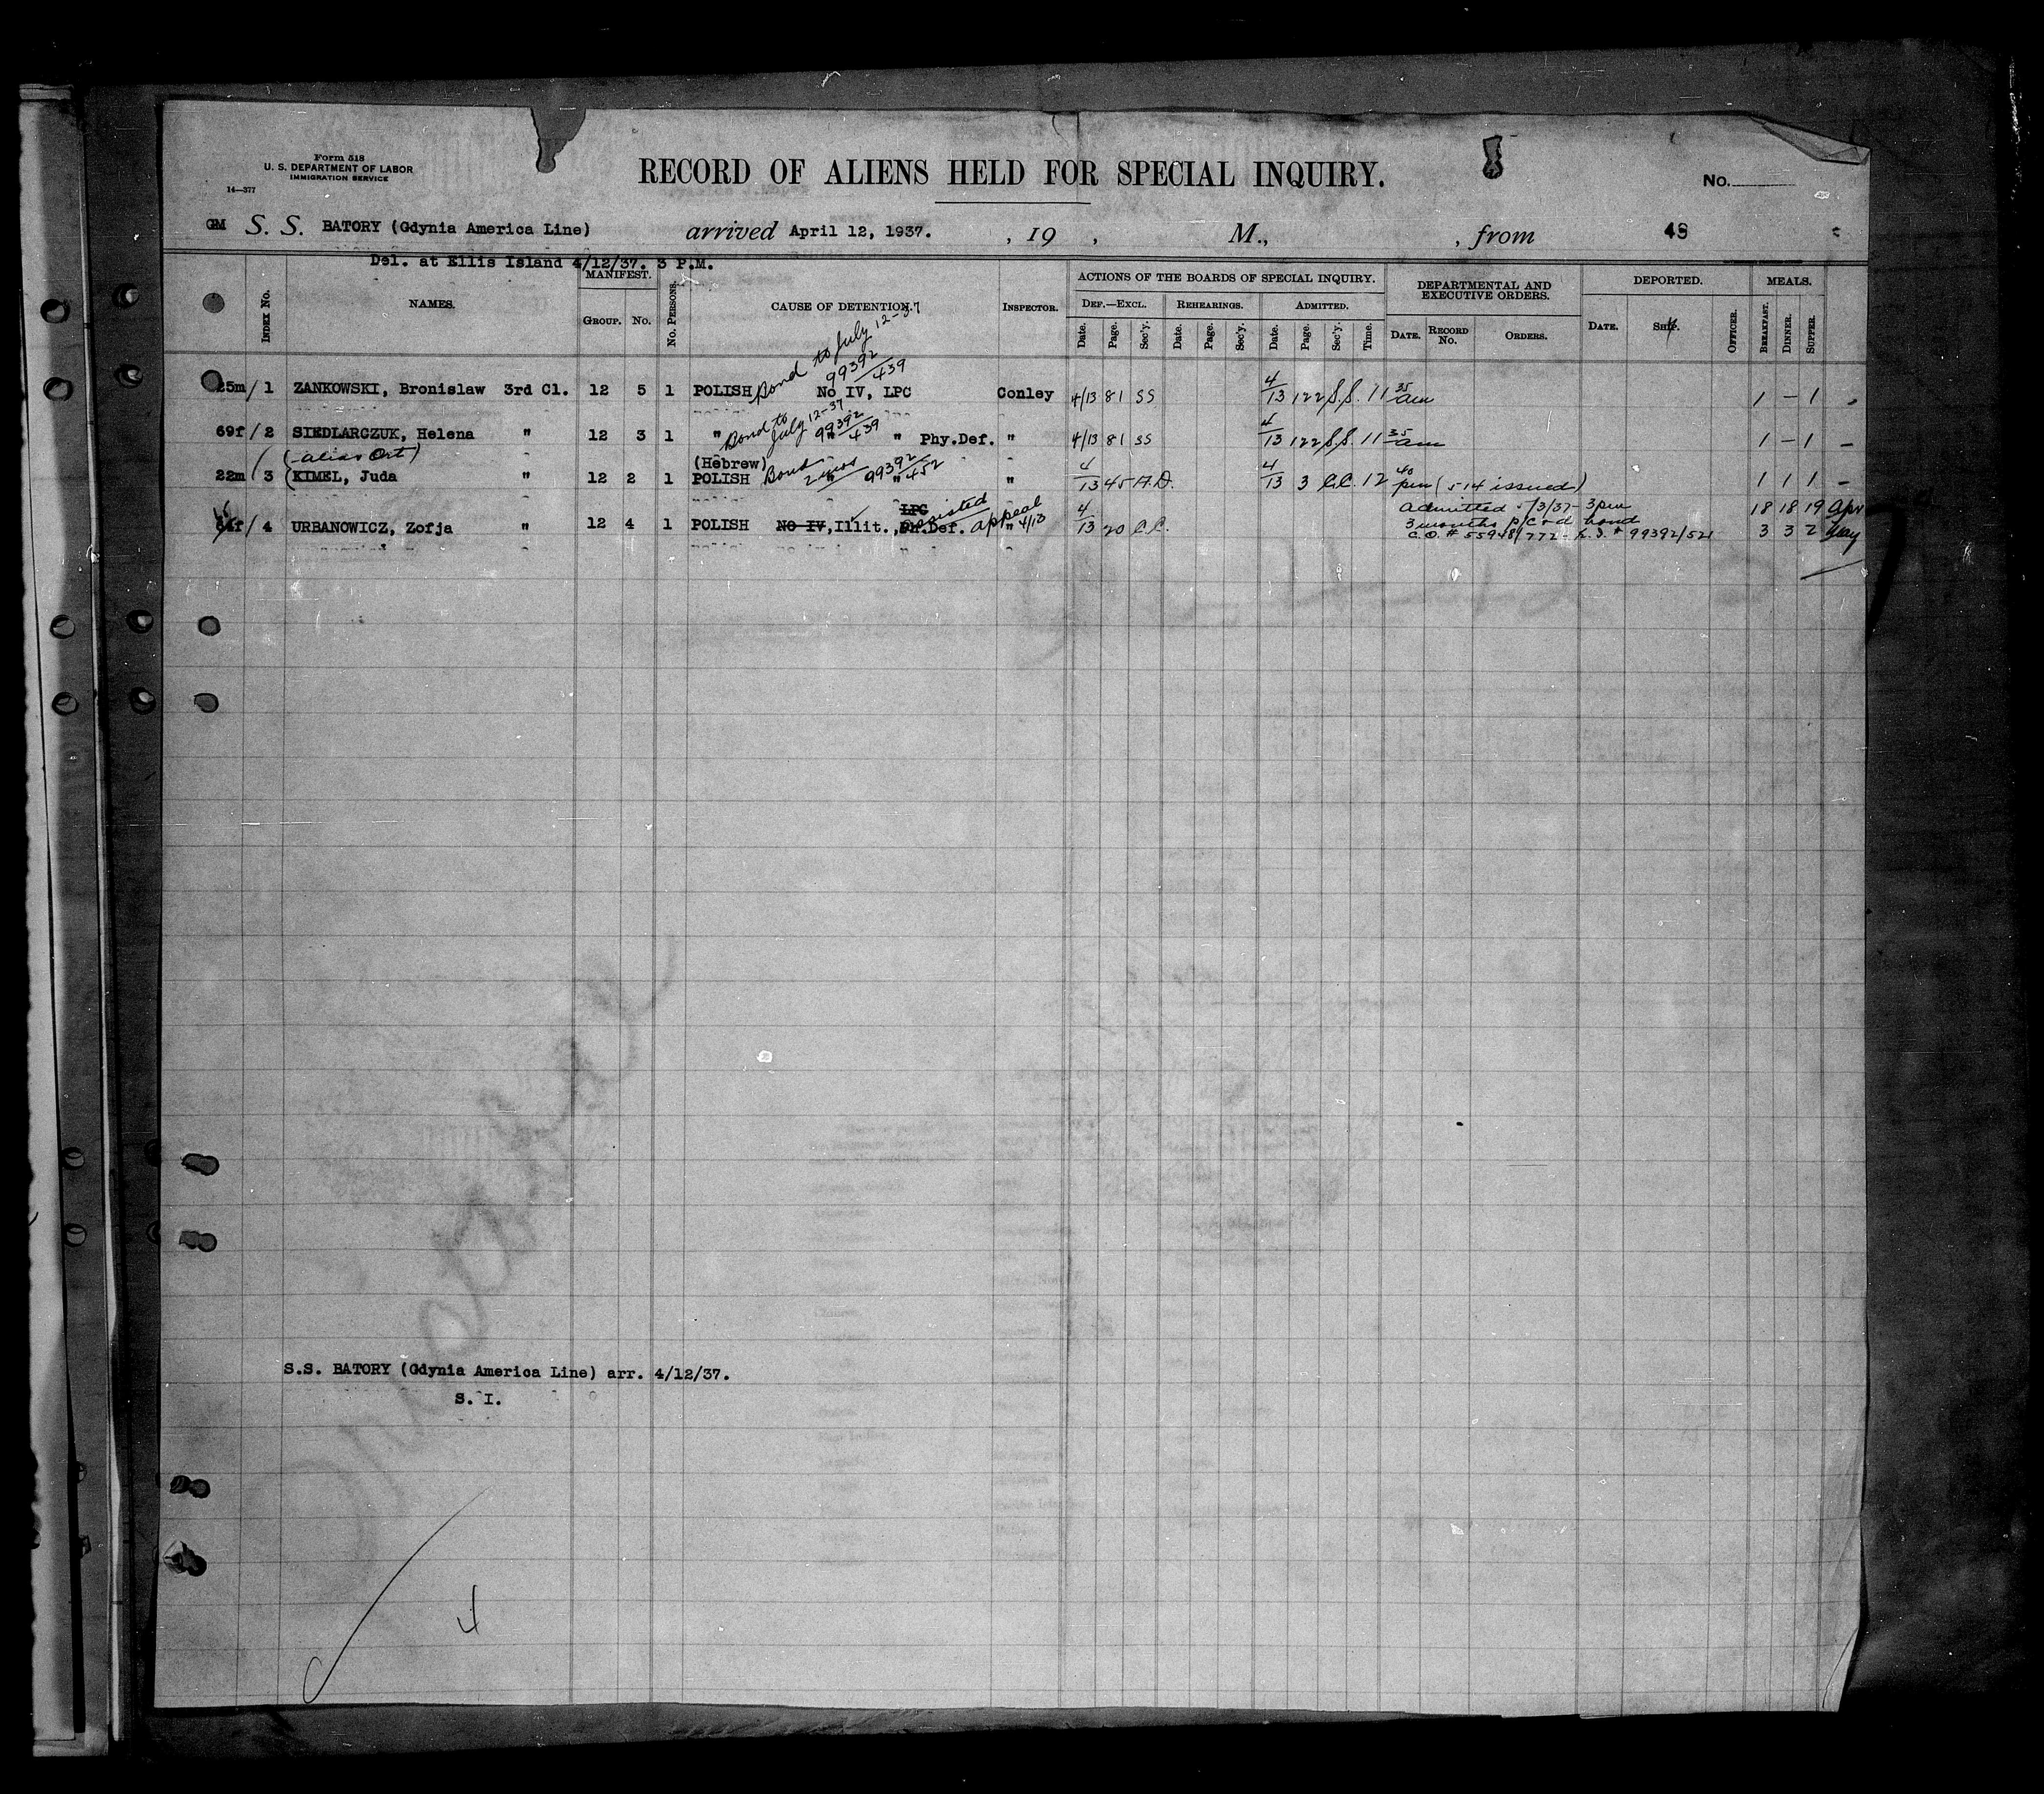 Form 518
U. S. DEPARTMENT OF LABOR
IMMIGRATION SERVICE
14—377
RECORD OF ALIENS HELD FOR SPECIAL INQUIRY.
No.
GM S. S. BATORY (Gdynia America Line) arrived April 12, 1937. , 19 , M., , from 48
Del. at Ellis Island 4/12/37. 3 P.M.
INDEX No. NAMES. MANIFEST. GROUP. No. No. PERSONS. CAUSE OF DETENTION. INSPECTOR. ACTIONS OF THE BOARDS OF SPECIAL INQUIRY. DEF.—EXCL. Date. Page. Sec'y. REHEARINGS. Date. Page. Sec'y. ADMITTED. Date. Page. Sec'y. Time. DEPARTMENTAL AND EXECUTIVE ORDERS. DATE. RECORD No. ORDERS. DEPORTED. DATE. SHIP. OFFICER. MEALS. BREAKFAST. DINNER. SUPPER.
Bond to July 12-37
99392/439
25m/ 1 ZANKOWSKI, Bronislaw 3rd Cl. 12 5 1 POLISH No IV, LPC Conley 4/13 81 SS 4/13 122 S.S. 11 35 am 1 — 1 -
Bond to July 12-37
99392/439
69f/ 2 SIEDLARCZUK, Helena " 12 3 1 " " " Phy.Def. " 4/13 81 SS 4/13 122 S.S. 11 35 am 1 — 1 —
(alias Ort)
(Hebrew)
22m/ 3 (KIMEL, Juda " 12 2 1 POLISH Bond 2 mos " 99392/452 " " 4/13 45 A.D. 4/13 3 C.C. 12 40 pm (514 issued) 1 1 1 —
LPC assisted
/ 4 URBANOWICZ, Zofja " 12 4 1 POLISH NO IV, Illit., Ph.Def. appeal 4/13 " 4/13 20 C.C. Admitted /3/37- 3pm 18 18 19 Apr
3 months p/c & d bond
C.O. # 55948/772 - 99392/521 3 3 2 May
S.S. BATORY (Gdynia America Line) arr. 4/12/37.
S. I.
4